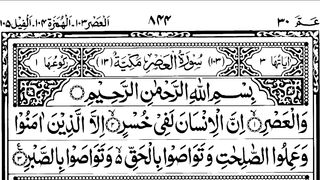 عَمَّ ٣٠ ٨٤٤ اَلْعَصْر ١٠٣ اَلْهُمَزَة ١٠٤ اَلْفِيْل ١٠٥
اٰيَاتُهَا ٣ (١٠٣) سُوْرَةُ الْعَصْرِ مَكِّيَّةٌ (١٣) رُكُوْعُهَا ١
بِسْمِ اللّٰهِ الرَّحْمٰنِ الرَّحِيْمِ
وَالْعَصْرِ ۙ﴿١﴾ اِنَّ الْاِنْسَانَ لَفِيْ خُسْرٍ ۙ﴿٢﴾ اِلَّا الَّذِيْنَ اٰمَنُوْا
وَعَمِلُوا الصّٰلِحٰتِ وَتَوَاصَوْا بِالْحَقِّ ۙ۬ وَتَوَاصَوْا بِالصَّبْرِ ﴿٣﴾